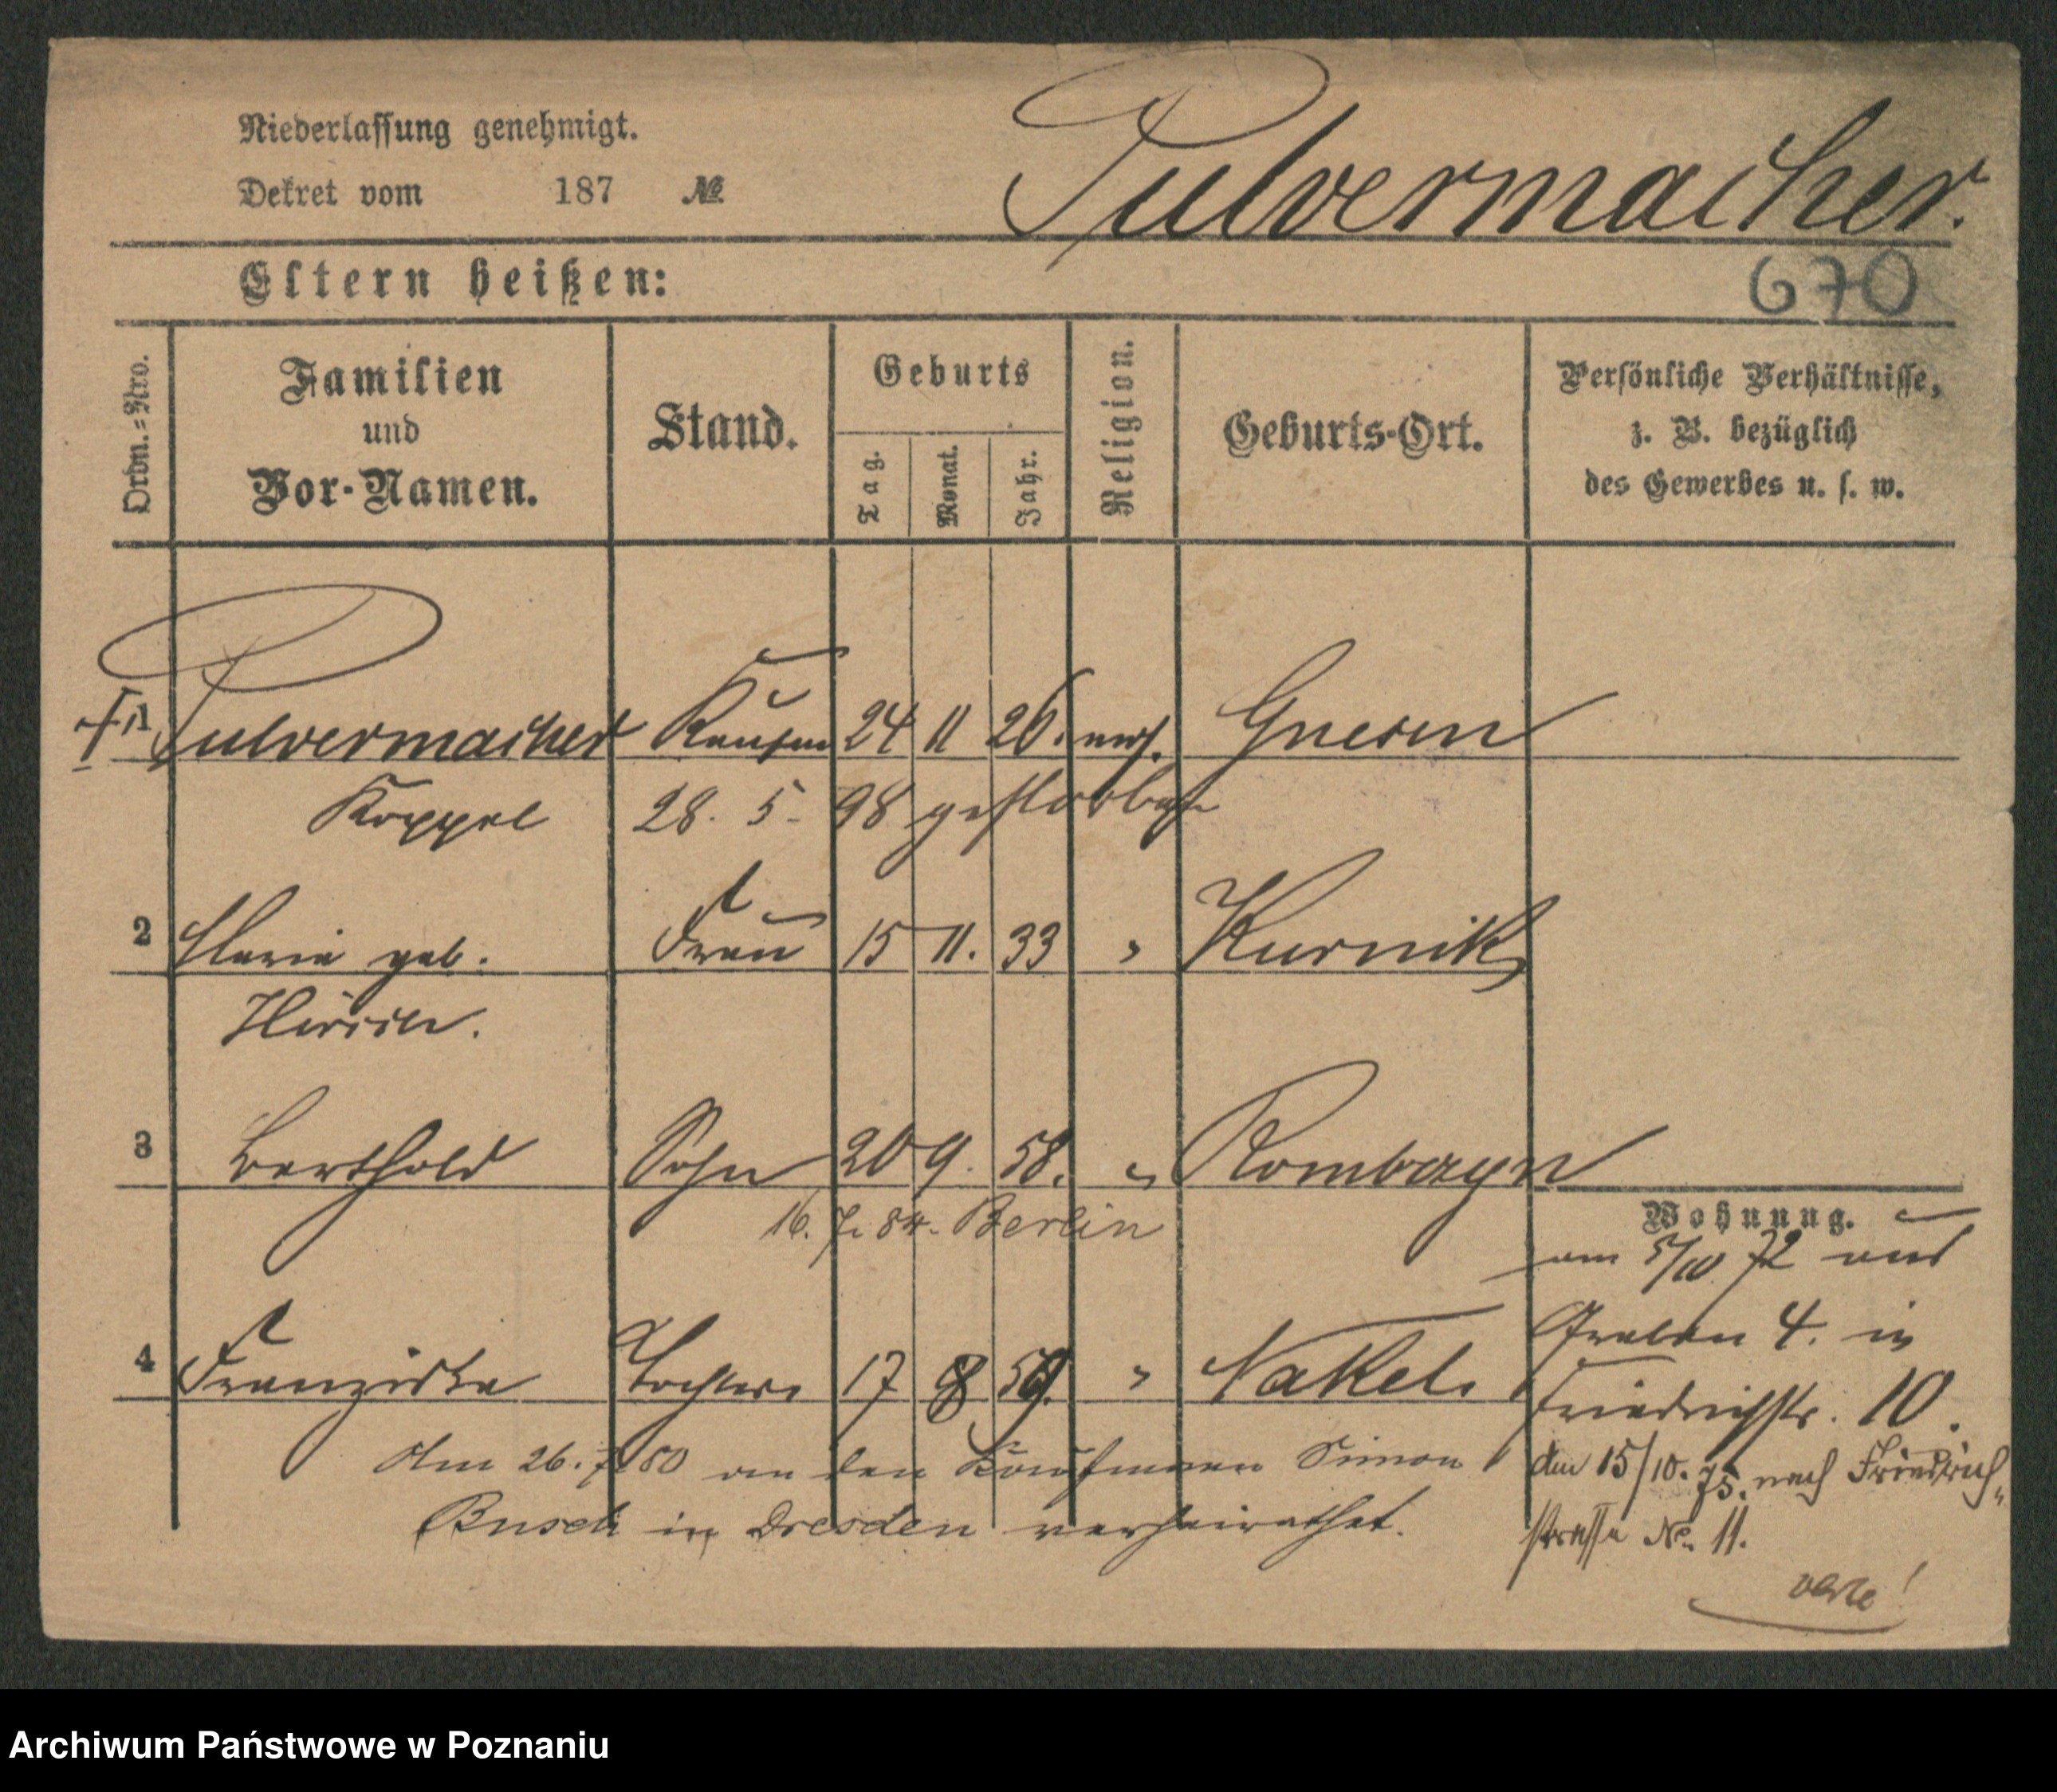 Niederlassung genehmigt.
Dekret vom 187 №
Pulvermacher.
Eltern heißen:
670
Ordn.-Nro.
Familien
und
Vor-Namen.
Stand.
Geburts
Tag.
Monat.
Jahr.
Religion.
Geburts-Ort.
Persönliche Verhältnisse,
z. B. bezüglich
des Gewerbes u. s. w.
1 Pulvermacher Kaufm 24 11 26. mos. Gnesen
Koppel 28. 5. 98 gestorben
2 Maria geb. Frau 15 11. 33 " Kurnik
Hirsch.
3 Berthold Sohn 20 9. 58. " Rombczyn
16. 7. 84. Berlin
4 Franziska Tochter 17 8 59. " Nakel.
Am 26. 7. 80 an den Kaufmann Simon
Busch in Dresden verheirathet.
Wohnung.
am 5/10 72 aus
Graben 4. in
Friedrichstr. 10.
den 15/10. 75. nach Friedrich„
strasse No. 11.
verte!
Archiwum Państwowe w Poznaniu